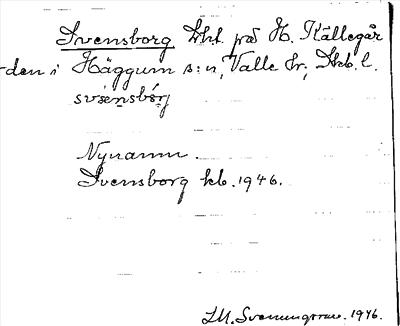 Svensborg Lht. på H. Källegår
-den i Häggum s:n, Valle hr, Skb. l.
svènsbórj
Nynamn.
Svensborg kb. 1946.
I.M. Svenungsson. 1946.